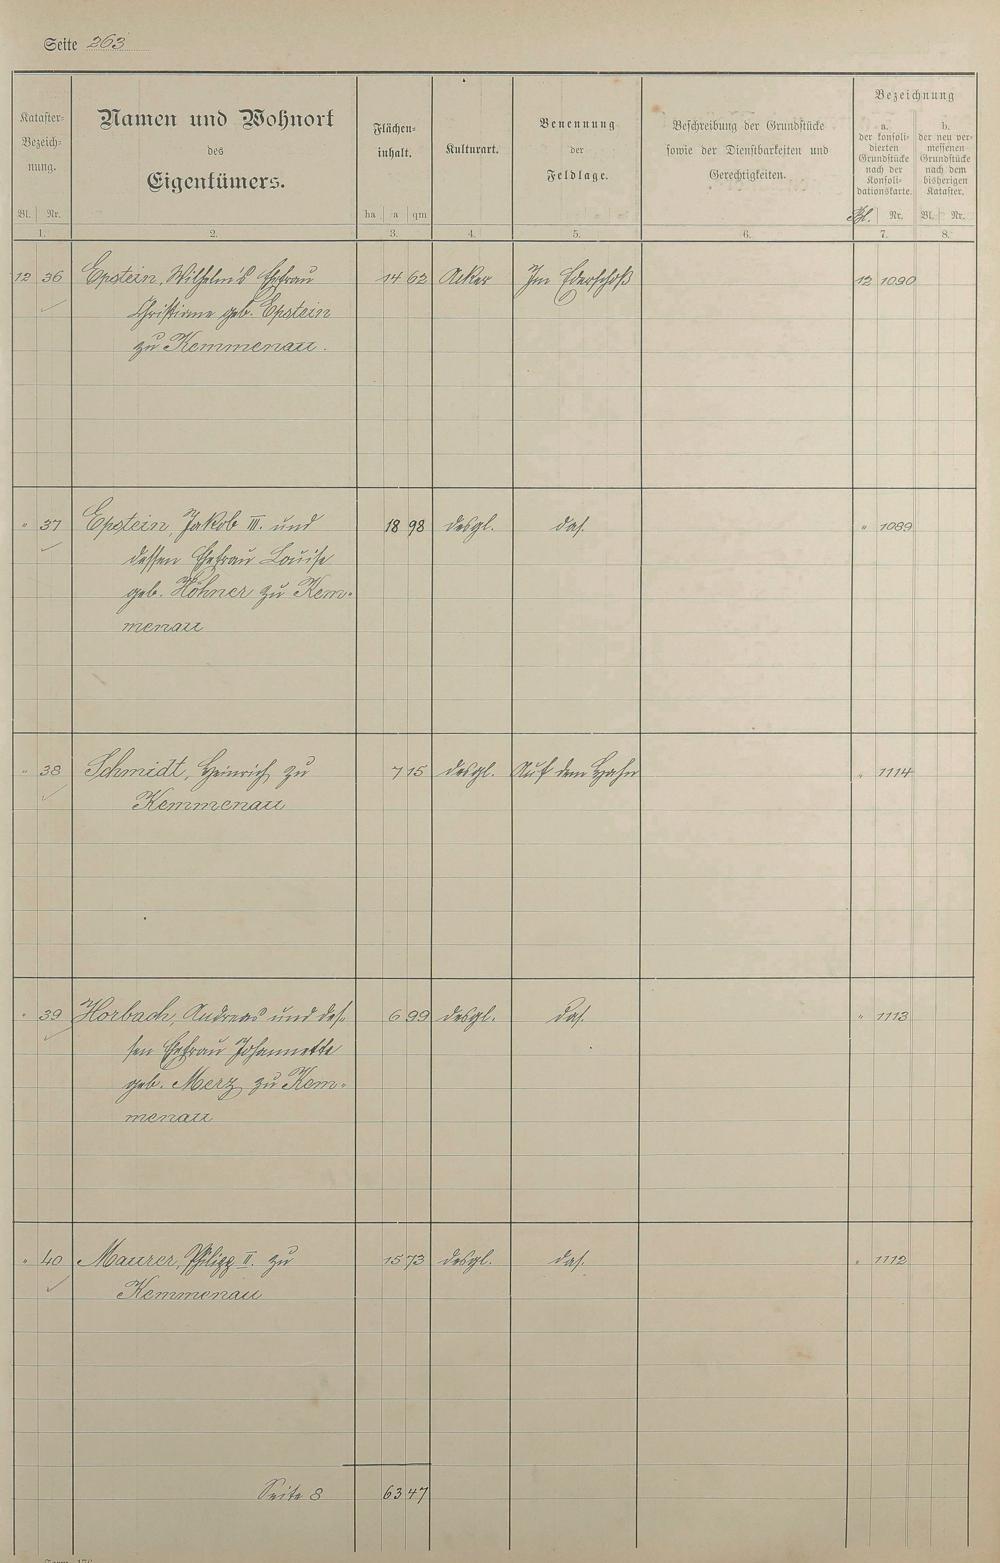 Seite 263
Kataster-
Bezeich-
nung.
Bl. Nr.
1.
Namen und Wohnort
des
Eigentümers.
2.
Flächen-
inhalt.
ha a qm
3.
Kulturart.
4.
Benennung
der
Feldlage.
5.
Beschreibung der Grundstücke
sowie der Dienstbarkeiten und
Gerechtigkeiten.
6.
Bezeichnung
a.
der konsoli-
dierten
Grundstücke
nach der
Konsoli-
dationskarte.
Bl. Nr.
7.
b.
der neu ver-
messenen
Grundstücke
nach dem
bisherigen
Kataster.
Bl. Nr.
8.
12 36 Epstein, Wilhelms Ehefrau 14 62 Acker Im Ederschoß 12 1090
Christiane geb. Epstein
zu Kemmenau.
" 37 Epstein, Jakob III. und 18 98 desgl. das. " 1089
dessen Ehefrau Louise
geb. Höhner zu Kem-
menau
" 38 Schmidt, Heinrich zu 7 15 desgl. Auf dem Hahn " 1114
Kemmenau
" 39 Horbach, Andreas und des- 6 99 desgl. das. " 1113
sen Ehefrau Johannette
geb. Merz zu Kem-
menau
" 40 Maurer, Philipp II. zu 15 73 desgl. das. " 1112
Kemmenau
Seite 8 63 47